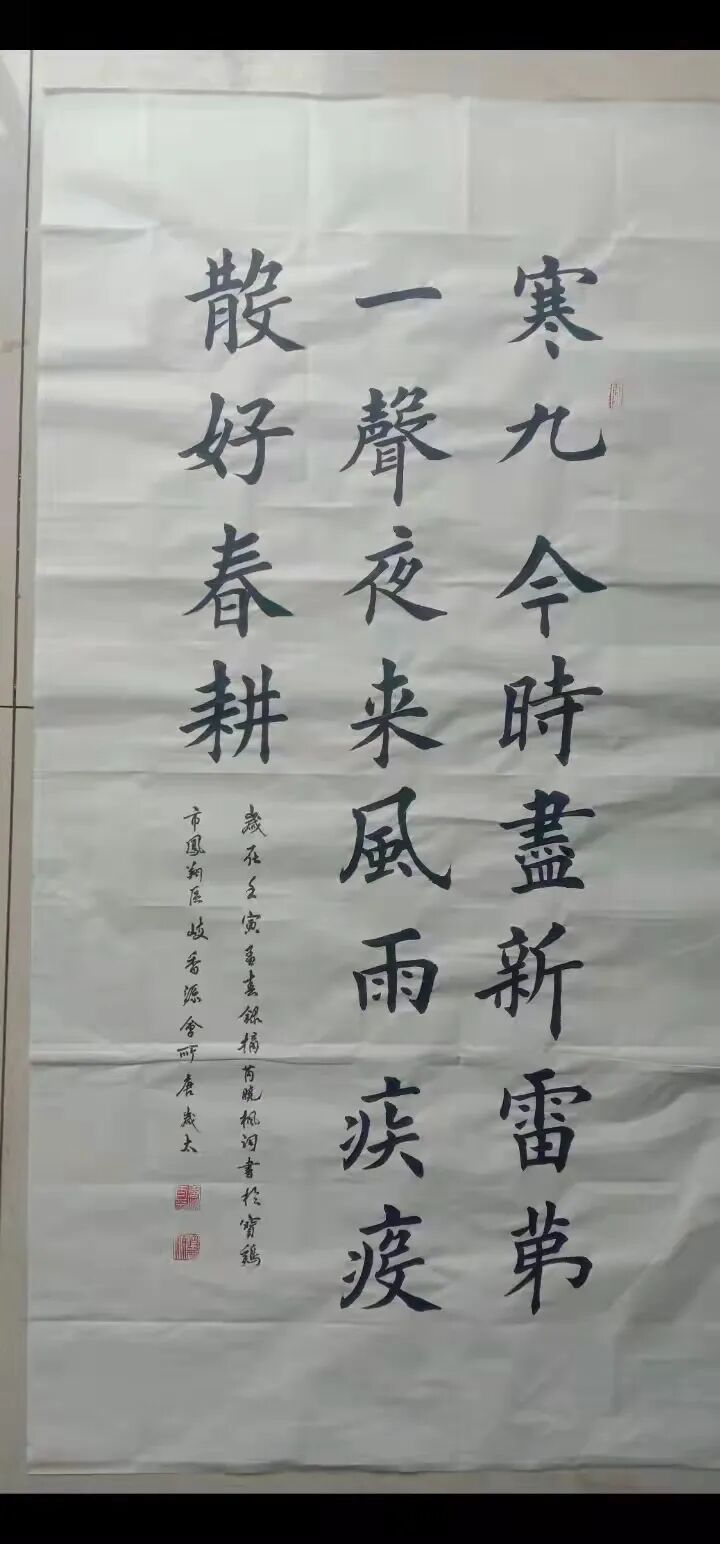 寒九今時盡新雷苐
一聲夜来風雨疾疫
散好春耕
歲在壬寅孟春錄橘芮曉楓詞書於寶鷄
市鳳翔區岐香源會所唐歲太